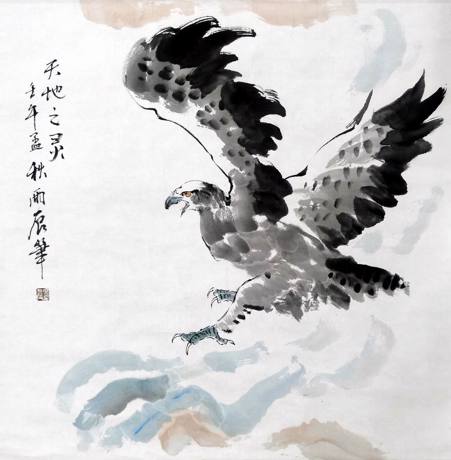 天地之灵
壬午孟秋雨辰笔